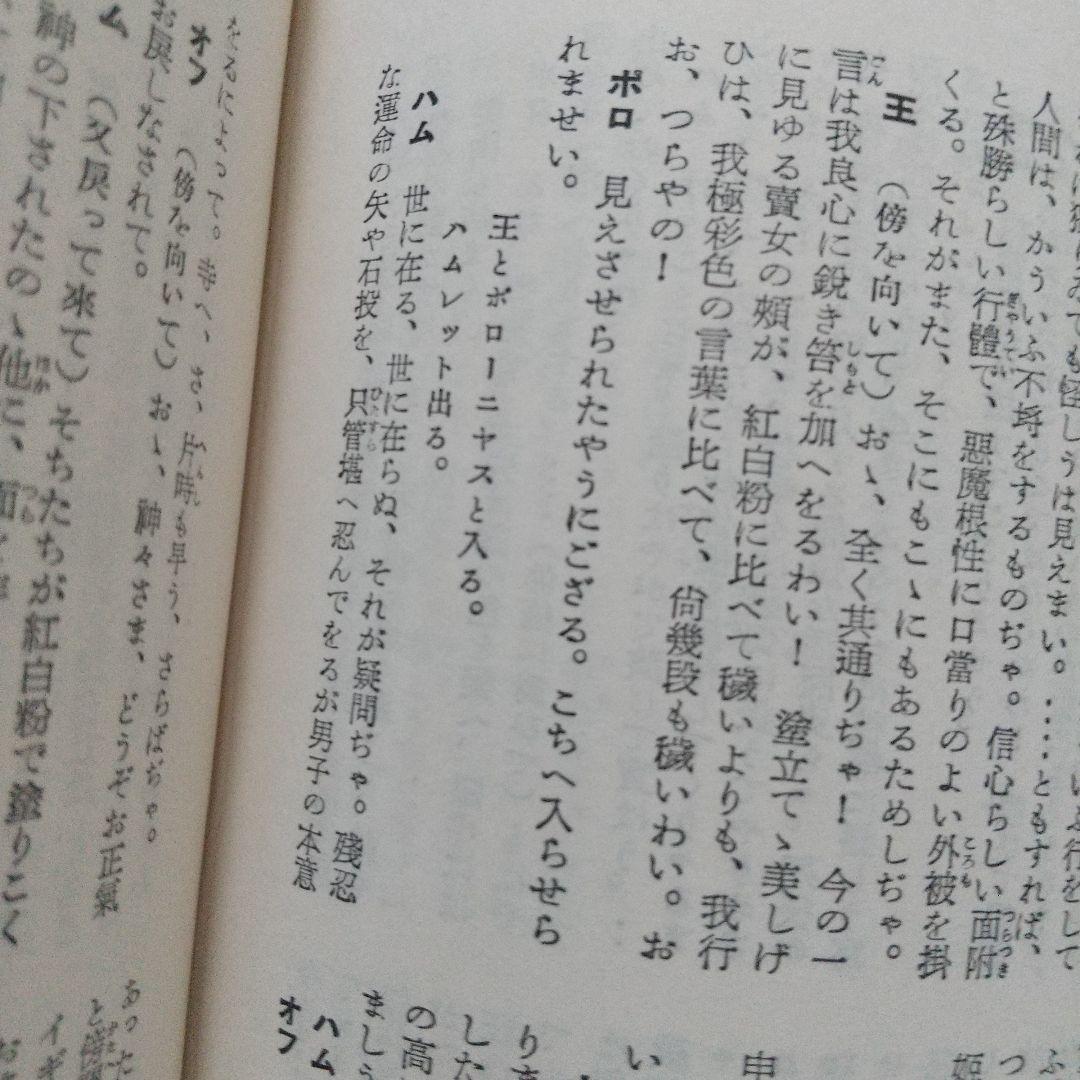 人間は、かういふ不埒をするものぢゃ。信心らしい面附
と殊勝らしい行體で、惡魔根性に口當りのよい外被を掛
くる。それがまた、そこにもこゝにもあるためしぢゃ。
王 (傍を向いて)おゝ、全く其通りぢゃ! 今の一
言は我良心に鋭き笞を加へをるわい! 塗立てゝ美しげ
に見ゆる賣女の頰が、紅白粉に比べて穢いよりも、我行
ひは、我極彩色の言葉に比べて、尙幾段も穢いわい。お
お、つらやの!
ポロ 見えさせられたやうにござる。こちへ入らせら
れませい。
王とポローニヤスと入る。
ハムレット出る。
ハム 世に在る、世に在らぬ、それが疑問ぢゃ。殘忍
な運命の矢や石投を、只管堪へ忍んでをるが男子の本意
をるによって。寺へ、さ、片時も早う、さらばぢゃ。
オフ (傍を向いて)おゝ、神々さま、どうぞお正氣
お戾しなされて。
ハム (又戾って來て)そちたちが紅白粉で塗りこく
神の下されたのゝ他に、
ふ
姫
つ
申
い
した
の高
ましう
ハム
オフ
あった